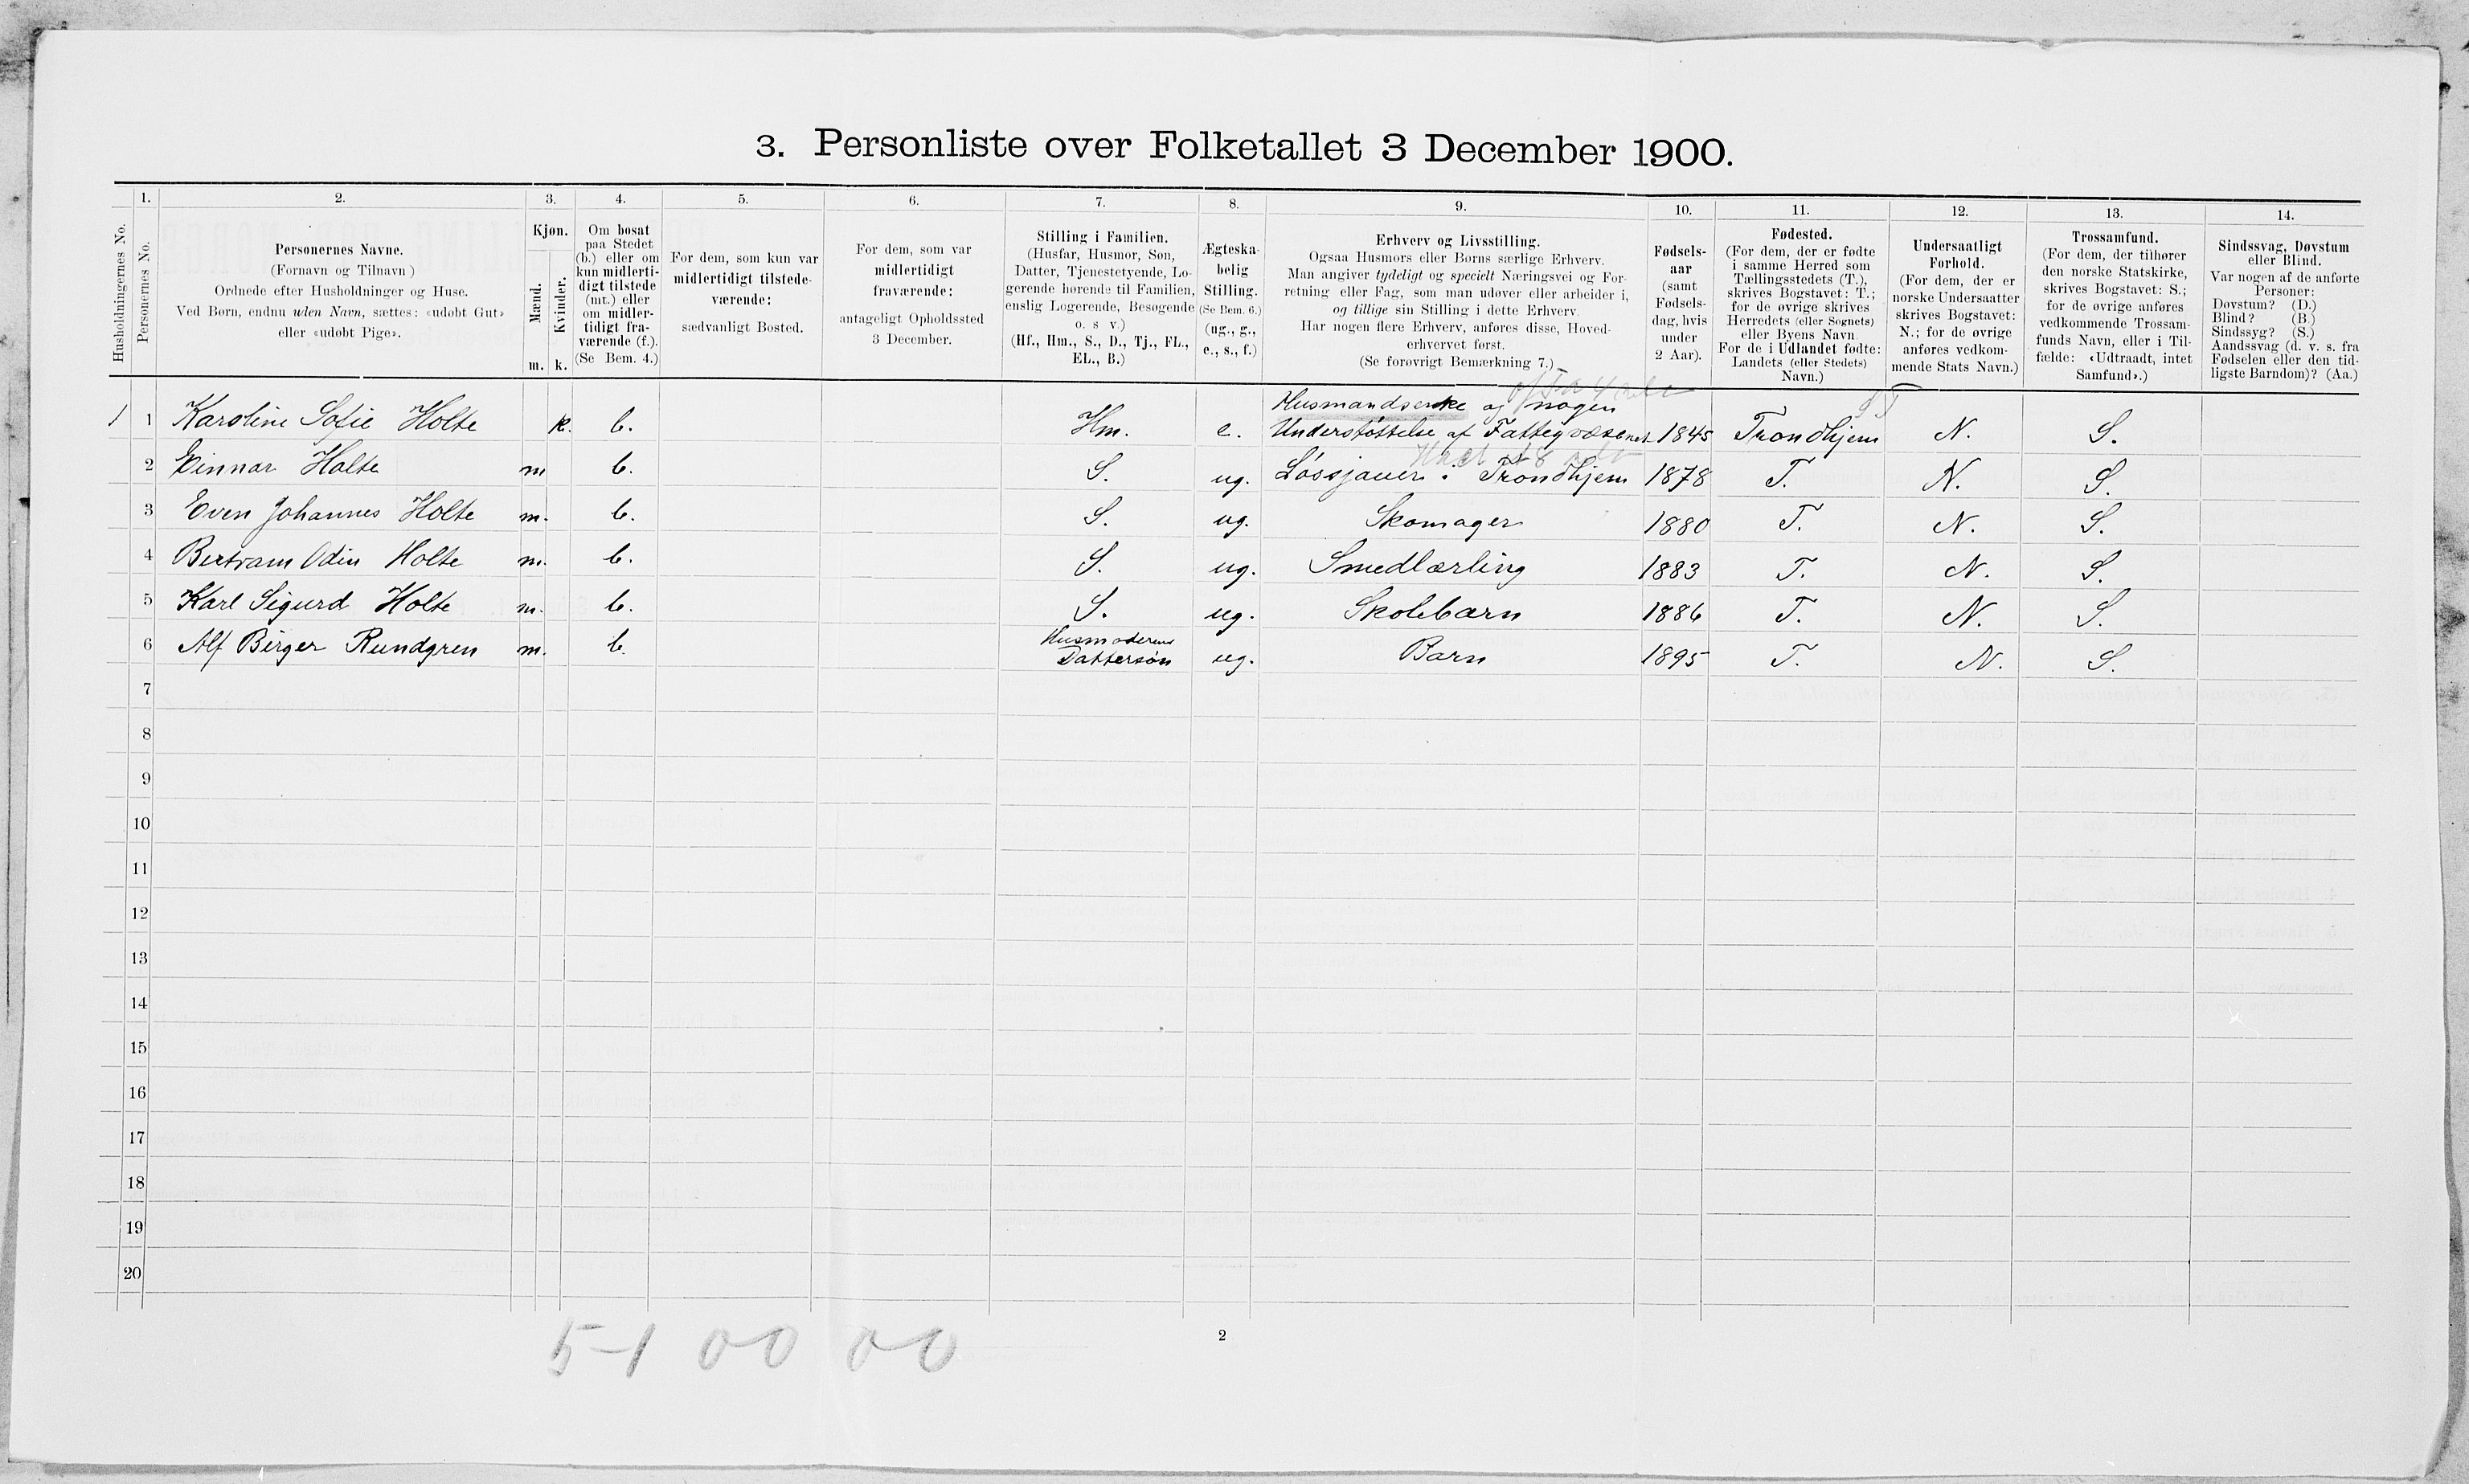 3. Personliste over Folketallet 3 December 1900.
Husholdningernes No.
1.
Personernes No.
2.
Personernes Navne.
(Fornavn og Tilnavn)
Ordnede efter Husholdninger og Huse.
Ved Børn, endnu uden Navn, sættes: «udøbt Gut»
eller «udøbt Pige».
3.
Kjøn.
Mænd.
Kvinder.
m. k.
4.
Om bosat
paa Stedet
(b.) eller om
kun midlerti-
digt tilstede
(mt.) eller
om midler-
tidigt fra-
værende (f.).
(Se Bem. 4.)
5.
For dem, som kun var
midlertidigt tilstede-
værende:
sædvanligt Bosted.
6.
For dem, som var
midlertidigt
fraværende:
antageligt Opholdssted
3 December.
7.
Stilling i Familien.
(Husfar, Husmor, Søn,
Datter, Tjenestetyende, Lo-
gerende hørende til Familien,
enslig Logerende, Besøgende
o. s v.)
(Hf., Hm., S., D., Tj., FL.,
EL., B.)
8.
Ægteska-
belig
Stilling.
(Se Bem. 6.)
(ug., g.,
e., s., f.)
9.
Erhverv og Livsstilling.
Ogsaa Husmors eller Børns særlige Erhverv.
Man angiver tydeligt og specielt Næringsvei og For-
retning eller Fag, som man udøver eller arbeider i,
og tillige sin Stilling i dette Erhverv.
Har nogen flere Erhverv, anføres disse, Hoved-
erhvervet først.
(Se forøvrigt Bemærkning 7.)
10.
Fødsels-
aar
(samt
Fødsels-
dag, hvis
under
2 Aar).
11.
Fødested.
(For dem, der er fødte
i samme Herred som
Tællingsstedets (T.),
skrives Bogstavet: T.;
for de øvrige skrives
Herredets (eller Sognets)
eller Byens Navn.
For de i Udlandet fødte:
Landets (eller Stedets)
Navn.)
12.
Undersaatligt
Forhold.
(For dem, der er
norske Undersaatter
skrives Bogstavet:
N.; for de øvrige
anføres vedkom-
mende Stats Navn.)
13.
Trossamfund.
(For dem, der tilhører
den norske Statskirke,
skrives Bogstavet: S.;
for de øvrige anføres
vedkommende Trossam-
funds Navn, eller i Til-
fælde: «Udtraadt, intet
Samfund».)
14.
Sindssvag, Døvstum
eller Blind.
Var nogen af de anførte
Personer:
Døvstum? (D.)
Blind? (B.)
Sindssyg? (S.)
Aandssvag (d. v. s. fra
Fødselen eller den tid-
ligste Barndom)? (Aa.)
Husmandsenke og nogen
1 1 Karoline Sofie Holte k. b. Hm. e. Understøttelse af Fattigvæsenet 1845 Trondhjem N. S.
2 Einnar Holte m b. S. ug. Løssjauer i Trondhjem 1878 T. N. S.
3 Even Johannes Holte m. b. S. ug. Skomager 1880 T. N. S.
4 Bertram Odin Holte m. b. S. ug. Smedlærling 1883 T. N. S.
5 Karl Sigurd Holte m. b. S. ug. Skolebarn 1886 T. N. S.
Husmoderens
6 Alf Birger Rundgren m. b. Dattersøn ug. Barn 1895 T. N. S.
7
8
9
10
11
12
13
14
15
16
17
18
19
20
5-1 00 00
2